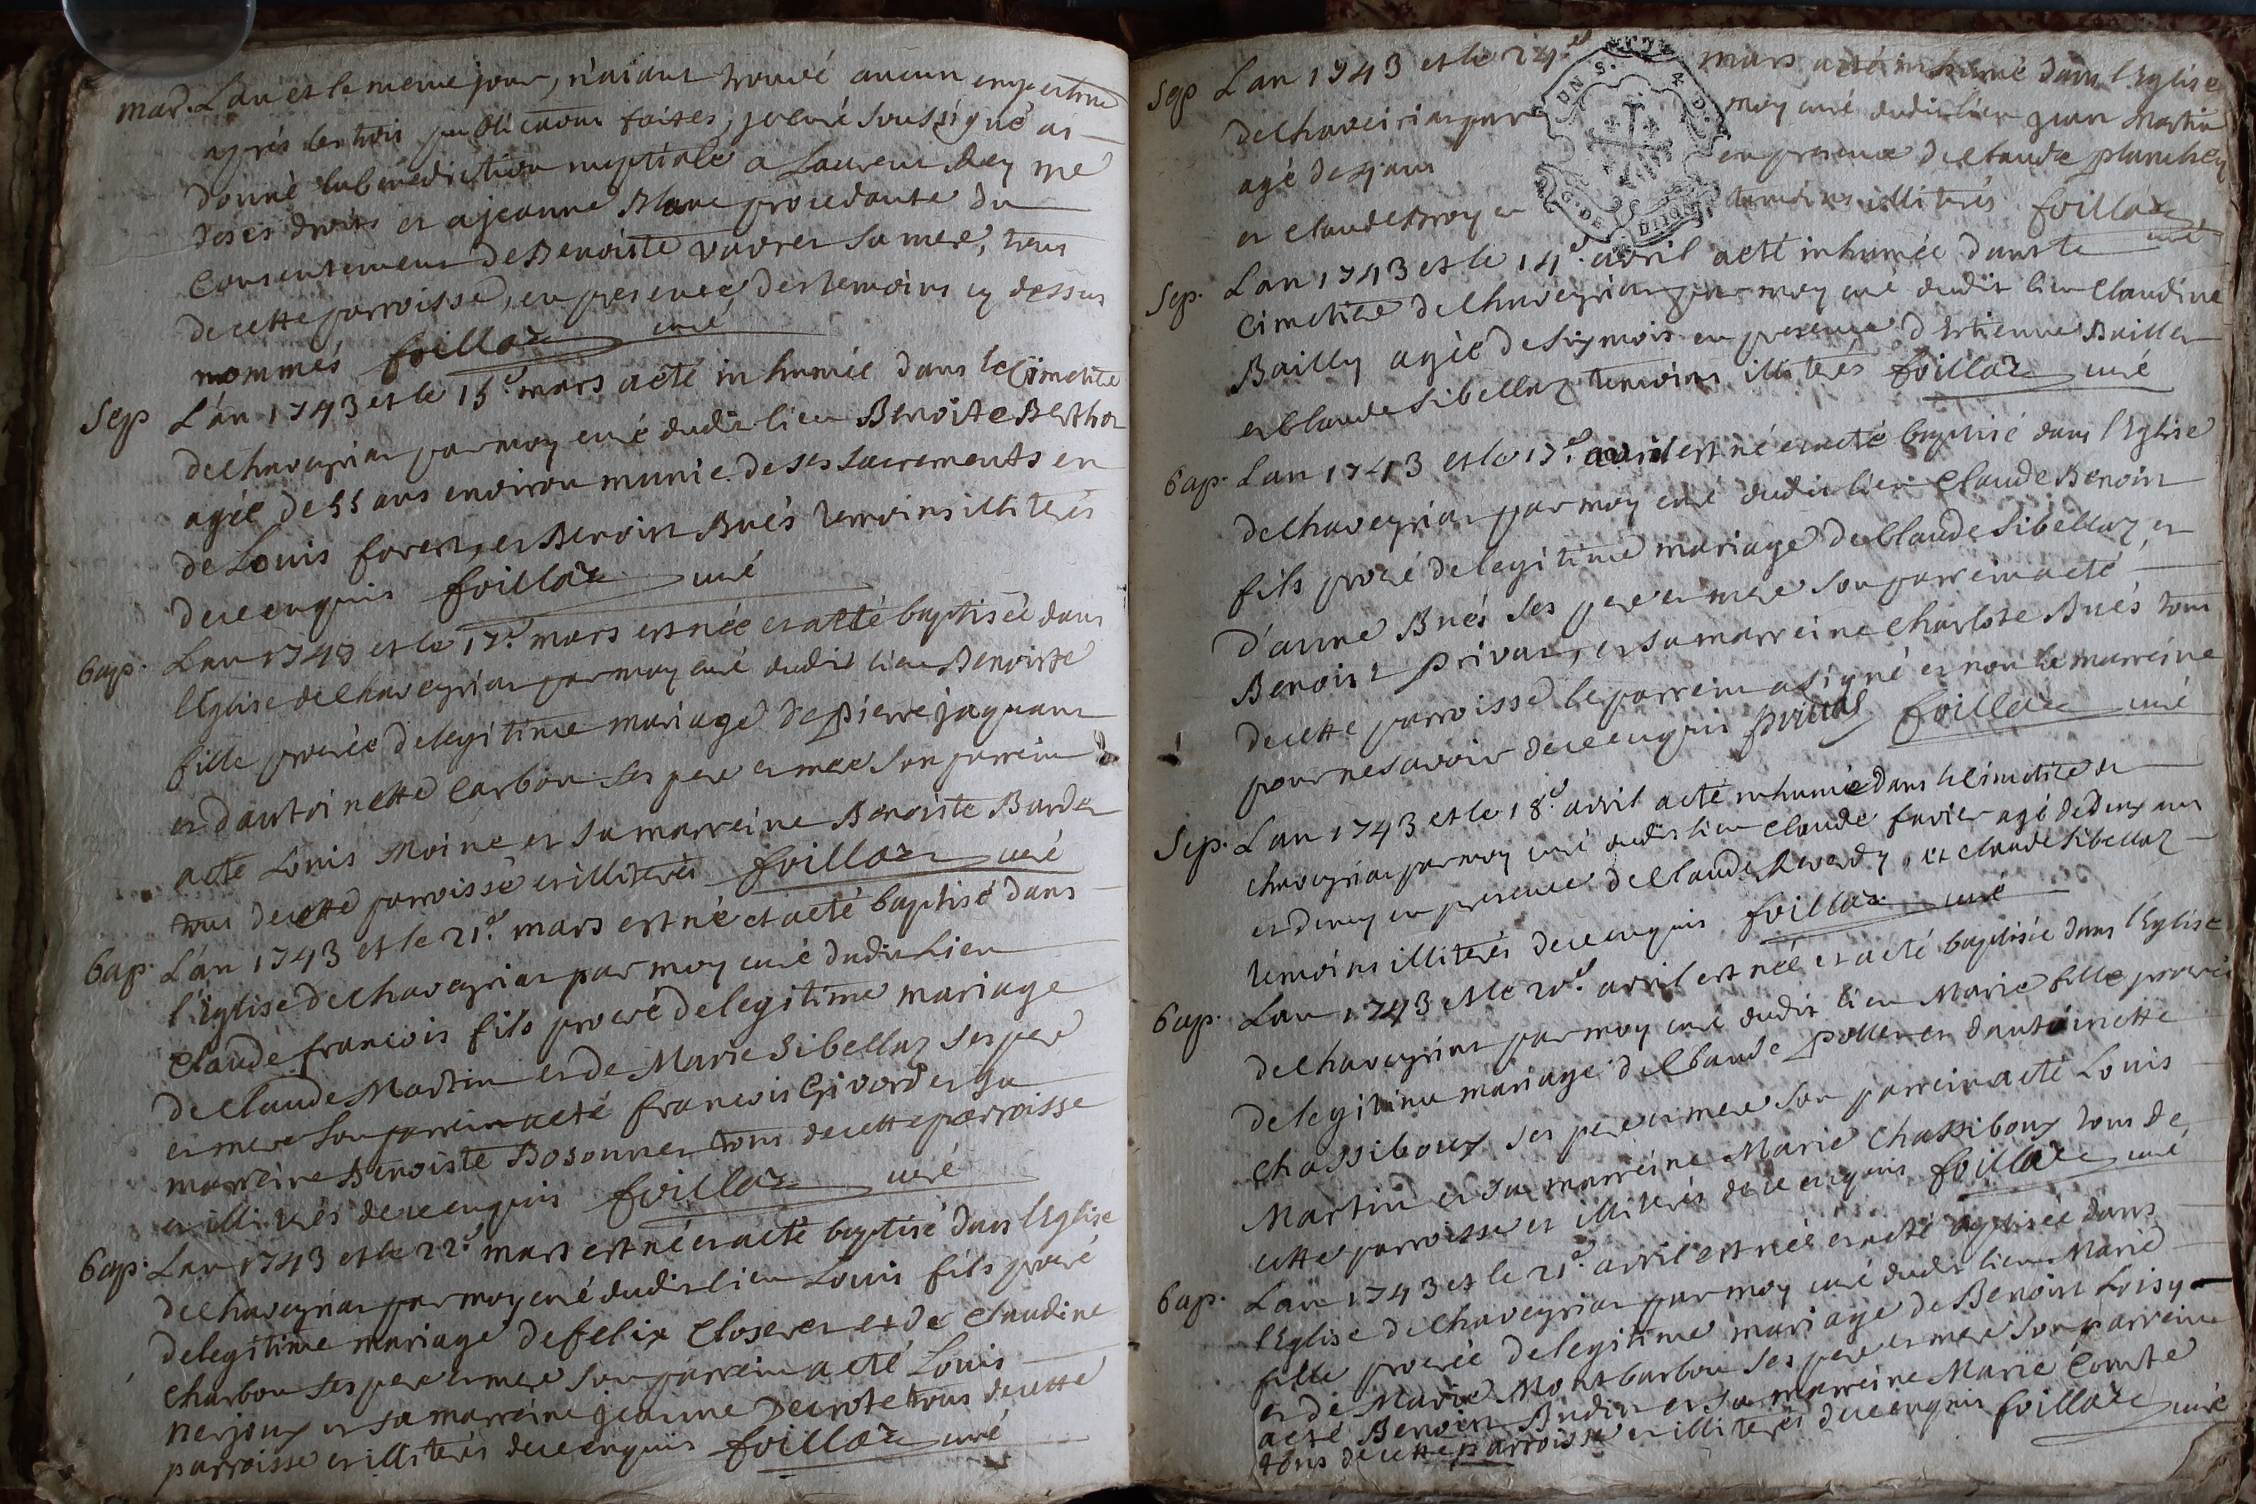 mar. L'an et le meme jour, n'aiant trouvé aucun empechem
aprés les trois publications faites, je curé soussigné ai
donné la benediction nuptiale a Laurent Rey me
de ses droits et a jeanne Blanc procedante du
consentement de Benoiste vuvrer sa mere, tous
de cette parroisse, en presence des temoins cy dessus
nommés foillaz curé
Sep L'an 1743 et le 15.e mars a eté inhumée dans le Cimetire
de chaveyriat par moy curé dudit lieu Benoiste Berthet
agée de 55 ans environ munie de ses sacrements en
de Louis foren, et Benoist Bués temoins illiterés
de ce enquis foillaz curé
bap. L'an 1743 et le 17.e mars est née et a eté baptisée dans
l'Eglise de chaveyriat par moy curé dudit lieu Benoiste
fille procrée de legitime mariage de pierre jaquant
et d'antoinette Carbon ses pere et mere son parrein
a eté Louis Moine et sa marreine Benoiste Burdet
tous de cette parroisse et illiterés foillaz curé
bap. L'an 1743 et le 21.e mars est né et a eté baptisé dans
l'Eglise de chaveyriat par moy curé dudit Lieu
Claude françois fils procré de legitime mariage
de Claude Martin et de Marie Sibellaz ses pere
et mere son parrein a eté francois Givord et sa
marreine Benoiste Bosonnet tous de cette parroisse
et illiterés de ce enquis foillaz curé
bap. L'an 1743 et le 22.e mars est né et a eté baptisé dans l'Eglise
de chaveyriat par moy curé dudit lieu Louis fils procré
de legitime mariage de felix Closeret et de Claudine
Charbon ses pere et mere son parrein a eté Louis
nerjoux et sa marreine jeanne Decrote tous de cette
parroisse et illiterés de ce enquis foillaz curé
Sep L'an 1743 et le 24.e mars a eté inhumé dans l'Eglise
de chaveiriat par moy curé dudit lieu jean Martin
agé de ans en presence de Claude planchey
et Claude Broy et temoins illiterés foillaz curé
Sep. L'an 1743 et le 14.e avril a eté inhumée dans le
cimetire de chaveyriat par moy curé dudit lieu Claudine
Bailly agée de six mois en presence d'Estienne Baillet
et Claude Sibellaz temoins illiterés foillaz curé
bap. L'an 1743 et le 17.e avril est né et a eté baptisé dans l'Eglise
de chaveyriat par moy curé dudit lieu Claude Benoist
fils procré de legitime mariage de Claude Sibellaz et
d'anne Bués ses pere et mere son parrein a eté
Benoist Privat, et sa marreine Charlote Bués tous
de cette parroisse le parrein a signé et non la marreine
pour ne savoir de ce enquis privat foillaz curé
Sep. L'an 1743 et le 18.e avril a eté inhumé dans le cimetire de
chaveyriat par moy curé dudit lieu Claude favier agé de deux ans
et demy en presence de Claude Reverdy, et Claude Sibellaz
temoins illiterés de ce enquis foillaz curé
bap. L'an 1743 et le 20.e avril est née et a eté baptisée dans l'Eglise
de chaveyriat par moy curé dudit lieu Marie fille procrée
de legitime mariage de Claude pollet et d'antoinette
Chassiboux ses pere et mere son parrein a eté Louis
Martin et sa marreine Marie Chassiboux tous de
cette parroisse et illiterés de ce enquis foillaz curé
bap. L'an 1743 et le 21.e avril est née et a eté baptisée dans
l'Eglise de chaveyriat par moy curé dudit lieu Marie
fille procrée de legitime mariage de Benoist Loisy
et de Marie Montbarbon ses pere et mere son parrein
a eté Benoist Budin et sa marreine Marie Comte
tous de cette parroisse et illiterés de ce enquis foillaz curé